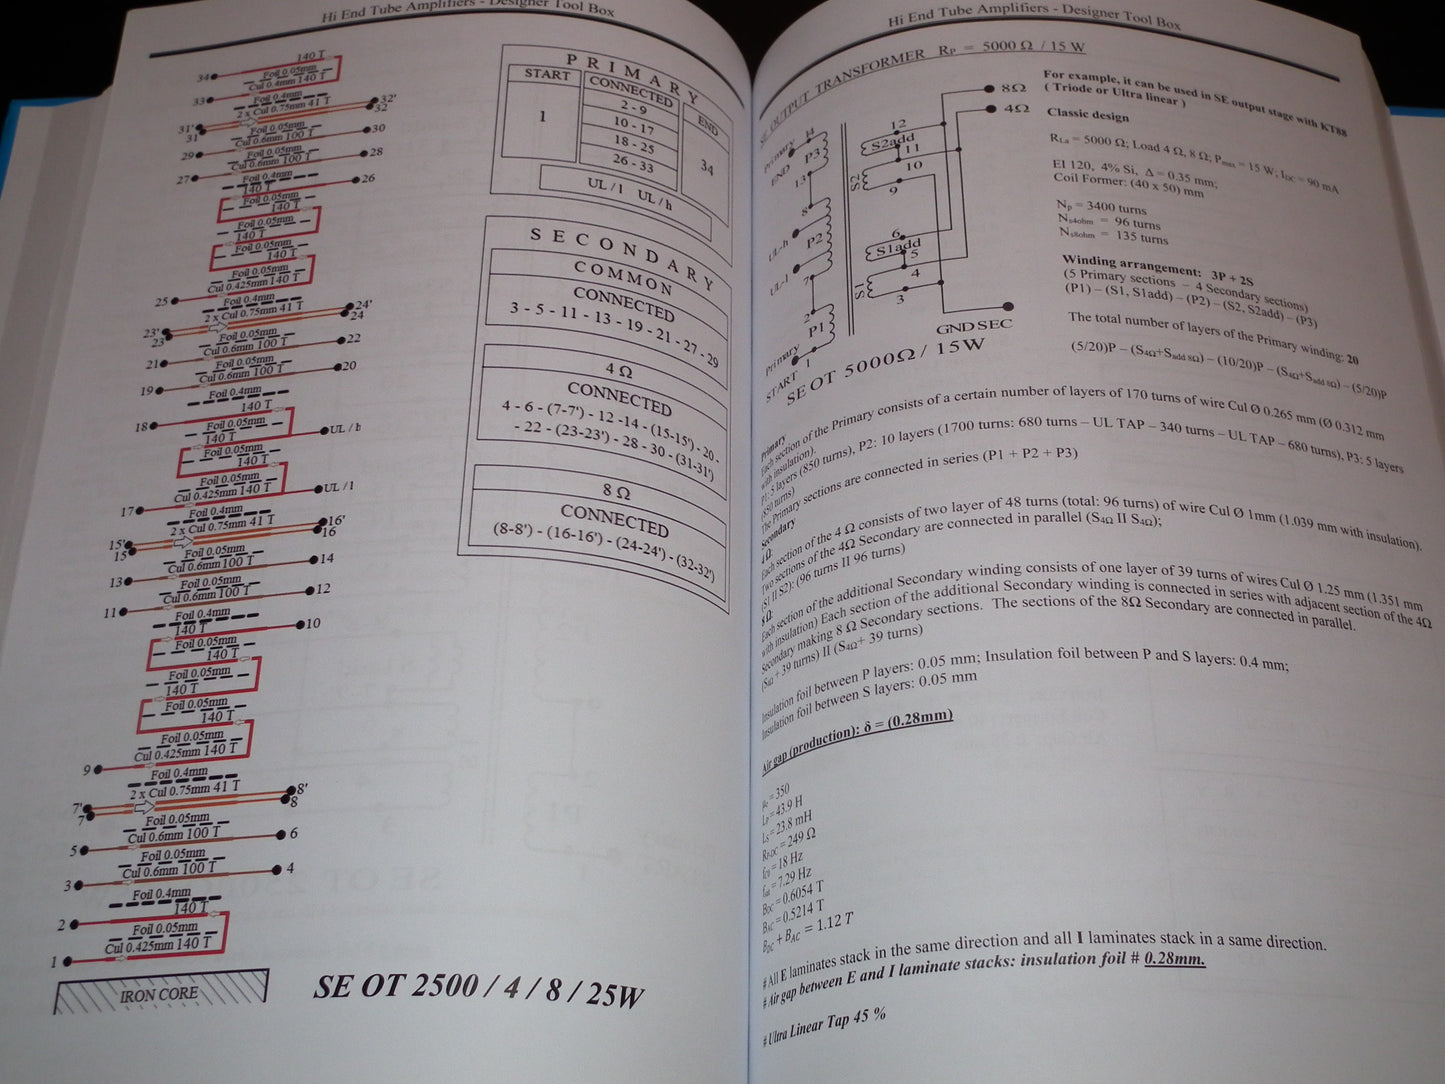 Hi End Tube Amplifiers - Designer Tool Box
140 T
34
Foil 0.05mm
Cul 0.4mm 140 T
33
Foil 0.4mm
2 x Cul 0.75mm 41 T
32'
32
31'
31
Foil 0.05mm
Cul 0.6mm 100 T
30
29
Foil 0.05mm
Cul 0.6mm 100 T
28
27
Foil 0.4mm
140 T
26
Foil 0.05mm
140 T
Foil 0.05mm
140 T
Foil 0.05mm
140 T
Foil 0.05mm
Cul 0.425mm 140 T
25
Foil 0.4mm
2 x Cul 0.75mm 41 T
24'
24
23'
23
Foil 0.05mm
Cul 0.6mm 100 T
22
21
Foil 0.05mm
Cul 0.6mm 100 T
20
19
Foil 0.4mm
140 T
18
Foil 0.05mm
140 T
UL / h
Foil 0.05mm
140 T
Foil 0.05mm
Cul 0.425mm 140 T
UL / l
17
Foil 0.4mm
2 x Cul 0.75mm 41 T
16'
16
15'
15
Foil 0.05mm
Cul 0.6mm 100 T
14
13
Foil 0.05mm
Cul 0.6mm 100 T
12
11
Foil 0.4mm
140 T
10
Foil 0.05mm
140 T
Foil 0.05mm
140 T
Foil 0.05mm
140 T
Foil 0.05mm
Cul 0.425mm 140 T
9
Foil 0.4mm
2 x Cul 0.75mm 41 T
8'
8
7'
7
Foil 0.05mm
Cul 0.6mm 100 T
6
5
Foil 0.05mm
Cul 0.6mm 100 T
4
3
Foil 0.4mm
140 T
2
Foil 0.05mm
Cul 0.425mm 140 T
1
IRON CORE
SE OT 2500 / 4 / 8 / 25W
PRIMARY
START
CONNECTED
END
1
2 - 9
10 - 17
18 - 25
26 - 33
34
UL / l UL / h
SECONDARY
COMMON
CONNECTED
3 - 5 - 11 - 13 - 19 - 21 - 27 - 29
4 Ω
CONNECTED
4 - 6 - (7-7') - 12 -14 - (15-15') - 20 -
- 22 - (23-23') - 28 - 30 - (31-31')
8 Ω
CONNECTED
(8-8') - (16-16') - (24-24') - (32-32')
Hi End Tube Amplifiers - Designer Tool Box
SE OUTPUT TRANSFORMER RP = 5000 Ω / 15 W
8Ω
4Ω
Primary
END
14
P3
13
8
UL-h
P2
UL-l
7
2
P1
Primary
START
1
12
S2add
11
10
S2
9
6
S1add
5
4
S1
3
GND SEC
SE OT 5000Ω / 15W
For example, it can be used in SE output stage with KT88
( Triode or Ultra linear )
Classic design
RLa = 5000 Ω; Load 4 Ω, 8 Ω; Pmax = 15 W; IDC = 90 mA
EI 120, 4% Si, Δ = 0.35 mm;
Coil Former: (40 x 50) mm
Np = 3400 turns
Ns4ohm = 96 turns
Ns8ohm = 135 turns
Winding arrangement: 3P + 2S
(5 Primary sections – 4 Secondary sections)
(P1) – (S1, S1add) – (P2) – (S2, S2add) – (P3)
The total number of layers of the Primary winding: 20
(5/20)P – (S4Ω+Sadd 8Ω) – (10/20)P – (S4Ω+Sadd 8Ω) – (5/20)P
Primary
Each section of the Primary consists of a certain number of layers of 170 turns of wire Cul Ø 0.265 mm (Ø 0.312 mm
with insulation).
P1: 5 layers (850 turns), P2: 10 layers (1700 turns: 680 turns – UL TAP – 340 turns – UL TAP – 680 turns), P3: 5 layers
(850 turns)
The Primary sections are connected in series (P1 + P2 + P3)
Secondary
4 Ω:
Each section of the 4 Ω consists of two layer of 48 turns (total: 96 turns) of wire Cul Ø 1mm (1.039 mm with insulation).
Two sections of the 4Ω Secondary are connected in parallel (S4Ω II S4Ω);
(S1 II S2): (96 turns II 96 turns)
8 Ω:
Each section of the additional Secondary winding consists of one layer of 39 turns of wires Cul Ø 1.25 mm (1.351 mm
with insulation) Each section of the additional Secondary winding is connected in series with adjacent section of the 4Ω
Secondary making 8 Ω Secondary sections. The sections of the 8Ω Secondary are connected in parallel.
(S4Ω + 39 turns) II (S4Ω+ 39 turns)
Insulation foil between P layers: 0.05 mm; Insulation foil between P and S layers: 0.4 mm;
Insulation foil between S layers: 0.05 mm
Air gap (production): δ = (0.28mm)
= 350
LP = 43.9 H
LS = 23.8 mH
RP-DC = 249 Ω
= 18 Hz
= 7.29 Hz
BDC = 0.6054 T
BAC = 0.5214 T
BDC + BAC = 1.12 T
# All E laminates stack in the same direction and all I laminates stack in a same direction.
# Air gap between E and I laminate stacks: insulation foil # 0.28mm.
# Ultra Linear Tap 45 %